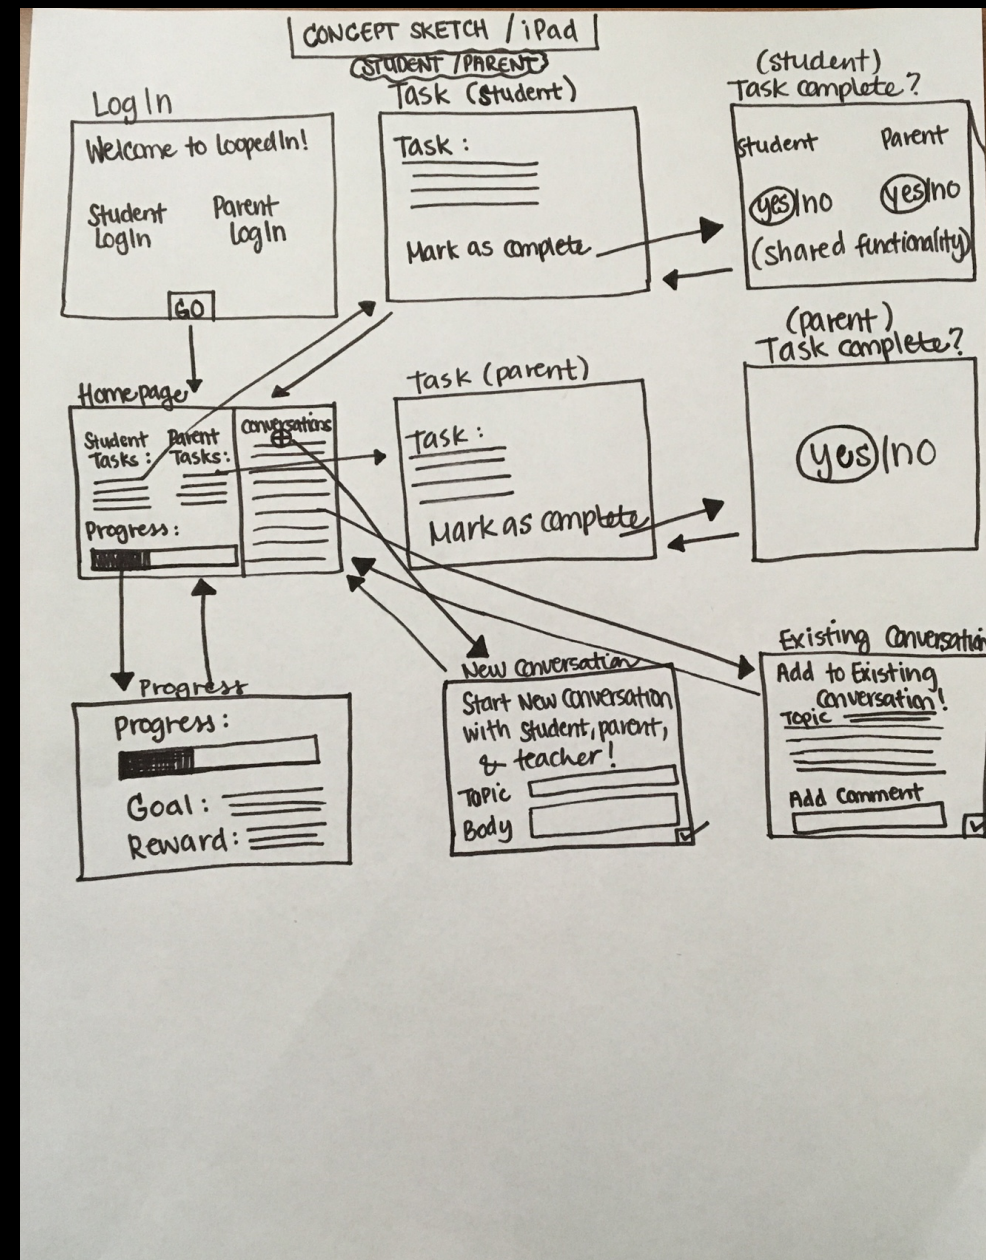 CONCEPT SKETCH / iPad
(STUDENT / PARENT)
Log In
Welcome to LoopedIn!
Student
LogIn
Parent
LogIn
GO
Task (Student)
Task :
Mark as complete
(student)
Task complete?
Student
Parent
yes/no
yes/no
(shared functionality)
Homepage
Student
Tasks :
Parent
Tasks:
Progress:
Conversations
Task (parent)
Task :
Mark as complete
(parent)
Task complete?
yes/no
Progress
Progress:
Goal :
Reward:
New Conversation
Start New Conversation
with Student, parent,
& teacher!
Topic
Body
Existing Conversation
Add to Existing
Conversation!
Topic
Add Comment